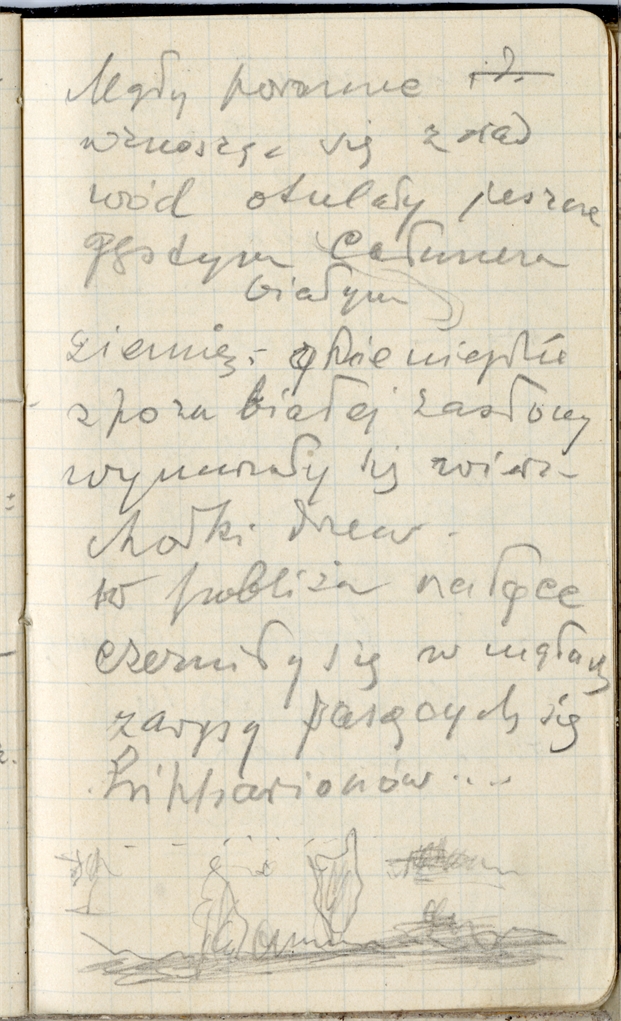 Mgły poranne
wznosząc się znad
wód otulały jeszcze
gęstym całunem
białym
ziemię; gdzieniegdzie
zpoza białej zasłony
wynurzały się wierz-
chołki drzew.
w pobliżu na łące
czerniły się w mgłach
zarysy pasących się
hipparionów...